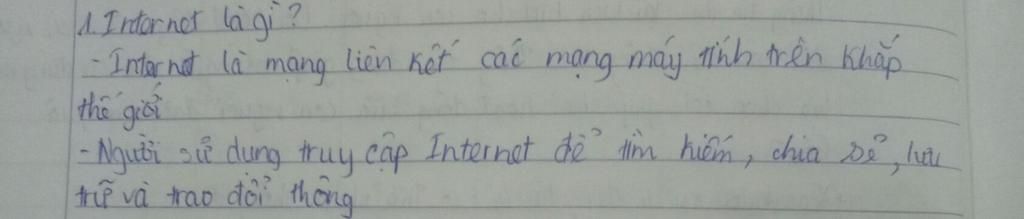 1. Internet là gì?
- Internet là mạng liên kết các mạng máy tính trên khắp
thế giới
- Người sử dụng truy cập Internet để tìm kiếm, chia sẻ, lưu
trữ và trao đổi thông